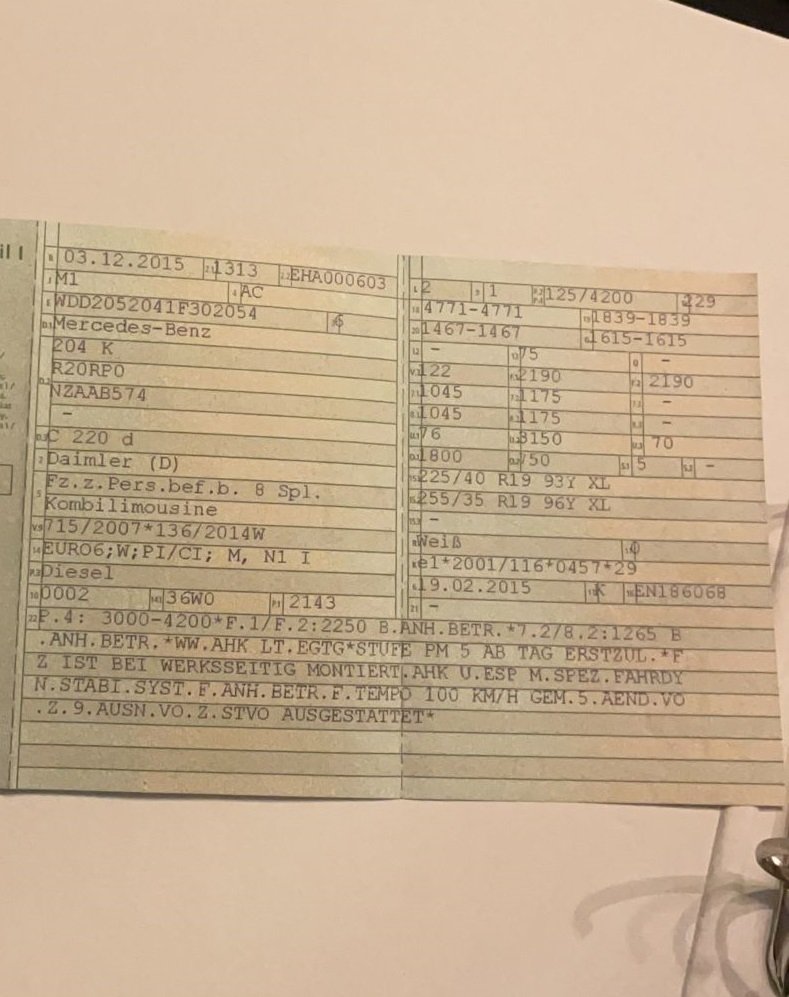 03.12.2015 1313 EHA000603
M1 AC
WDD2052041F302054
Mercedes-Benz
204 K
R20RP0
NZAAB574
-
C 220 d
Daimler (D)
Fz.z.Pers.bef.b. 8 Spl.
Kombilimousine
715/2007*136/2014W
EURO6;W;PI/CI; M, N1 I
Diesel
0002 36W0 2143
2 1 125/4200 229
4771-4771 1839-1839
1467-1467 1615-1615
- 75 -
122 2190 2190
1045 1175 -
1045 1175 -
76 3150 70
1800 750 5 -
225/40 R19 93Y XL
255/35 R19 96Y XL
-
Weiß 0
e1*2001/116*0457*29
19.02.2015 K EN186068
-
P.4: 3000-4200*F.1/F.2:2250 B.ANH.BETR.*7.2/8.2:1265 B
.ANH.BETR.*WW.AHK LT.EGTG*STUFE PM 5 AB TAG ERSTZUL.*F
Z IST BEI WERKSSEITIG MONTIERT.AHK U.ESP M.SPEZ.FAHRDY
N.STABI.SYST.F.ANH.BETR.F.TEMPO 100 KM/H GEM.5.AEND.VO
.Z.9.AUSN.VO.Z.STVO AUSGESTATTET*